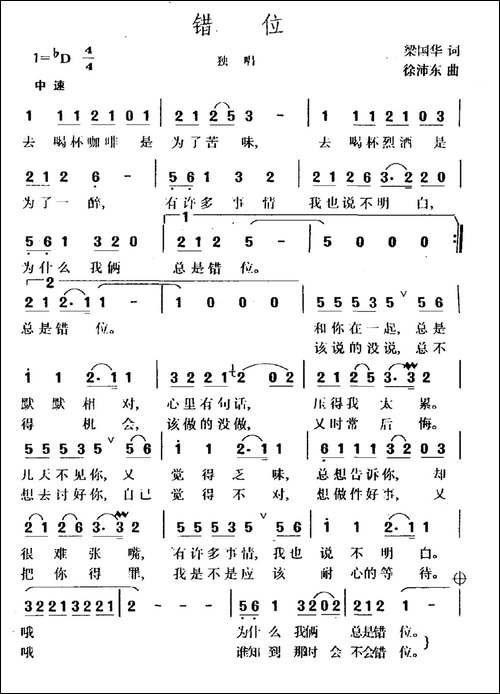 错 位
1=♭D 4/4
独 唱
梁国华 词
徐沛东 曲
中速
1 1 1 2 1 0 1 | 2 1 2 5 3 | 2 - - | 1 1 2 1 0 3 |
去 喝杯咖啡 是 为了苦 味, 去 喝杯烈酒 是
2 1 2 6 - | 5 6 1 3 2 | 2 1 2 6 3· 2 2 2 0 |
为了一 醉, 有许多 事 情 我也说不明 白,
1
5 6 1 3 2 0 | 2 1 2 5 - | 5 0 0 0 :‖
为什么 我俩 总是错 位。
2
2 1 2 2· 1 1 | 1 0 0 0 | 5 5 5 3 5 ∨ 5 6 |
总是错 位。 和你在一起, 总是
该说的没说, 总不
1 1 2· 1 1 | 3 2 2 1 2 0 2 | 2 1 2 5 3· 3 2 |
默 默 相 对, 心里有句话, 压得我 太 累。
得 机 会, 该做的没做, 又时常 后 悔。
5 5 5 3 5 ∨ 5 6 | 1 2· 1 1 | 6 1 1 1 3 2 0 3 |
几天不见你, 又 觉 得 乏 味, 总想告诉你, 却
想去讨好你, 自己 觉 得 不 对, 想做件好事, 又
2 1 2 6 3· 3 2 | 5 5 5 3 5 ∨ 5 6 | 1 1 0 2· 1 1 |
很 难 张 嘴, 有许多事情, 我也 说 不 明 白。
把 你 得 罪, 我是不是应 该 耐 心的等 待。
3 2 2 1 3 2 2 1 | 2 - - - | 5 6 1 3 2 0 2 | 2 1 2 1 | 1 - - - ‖
哦 为什么 我俩 总是错 位。
哦 谁知到 那时 会 不会错 位。}